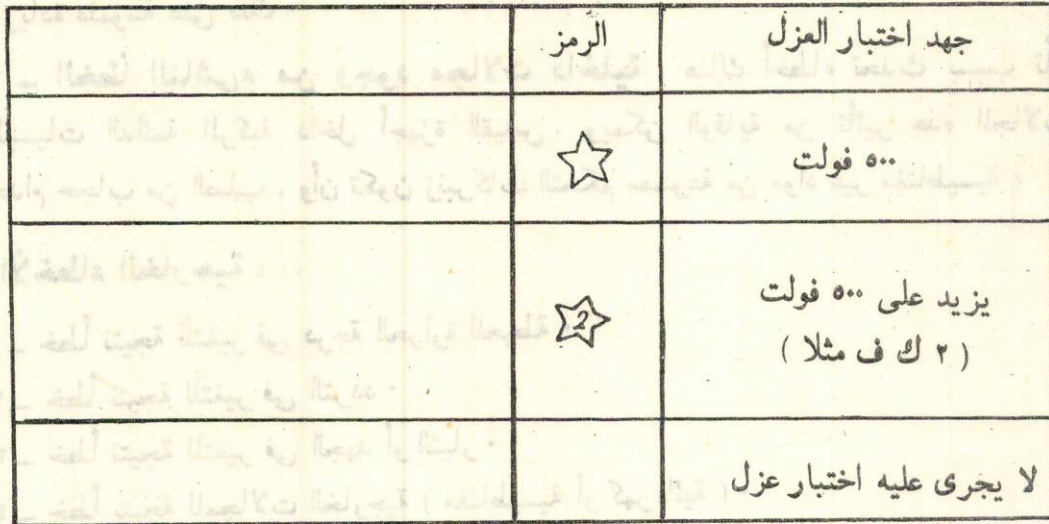 جهد اختبار العزل
الرمز
٥٠٠ فولت
يزيد على ٥٠٠ فولت
2
( ٢ ك ف مثلا )
لا يجرى عليه اختبار عزل